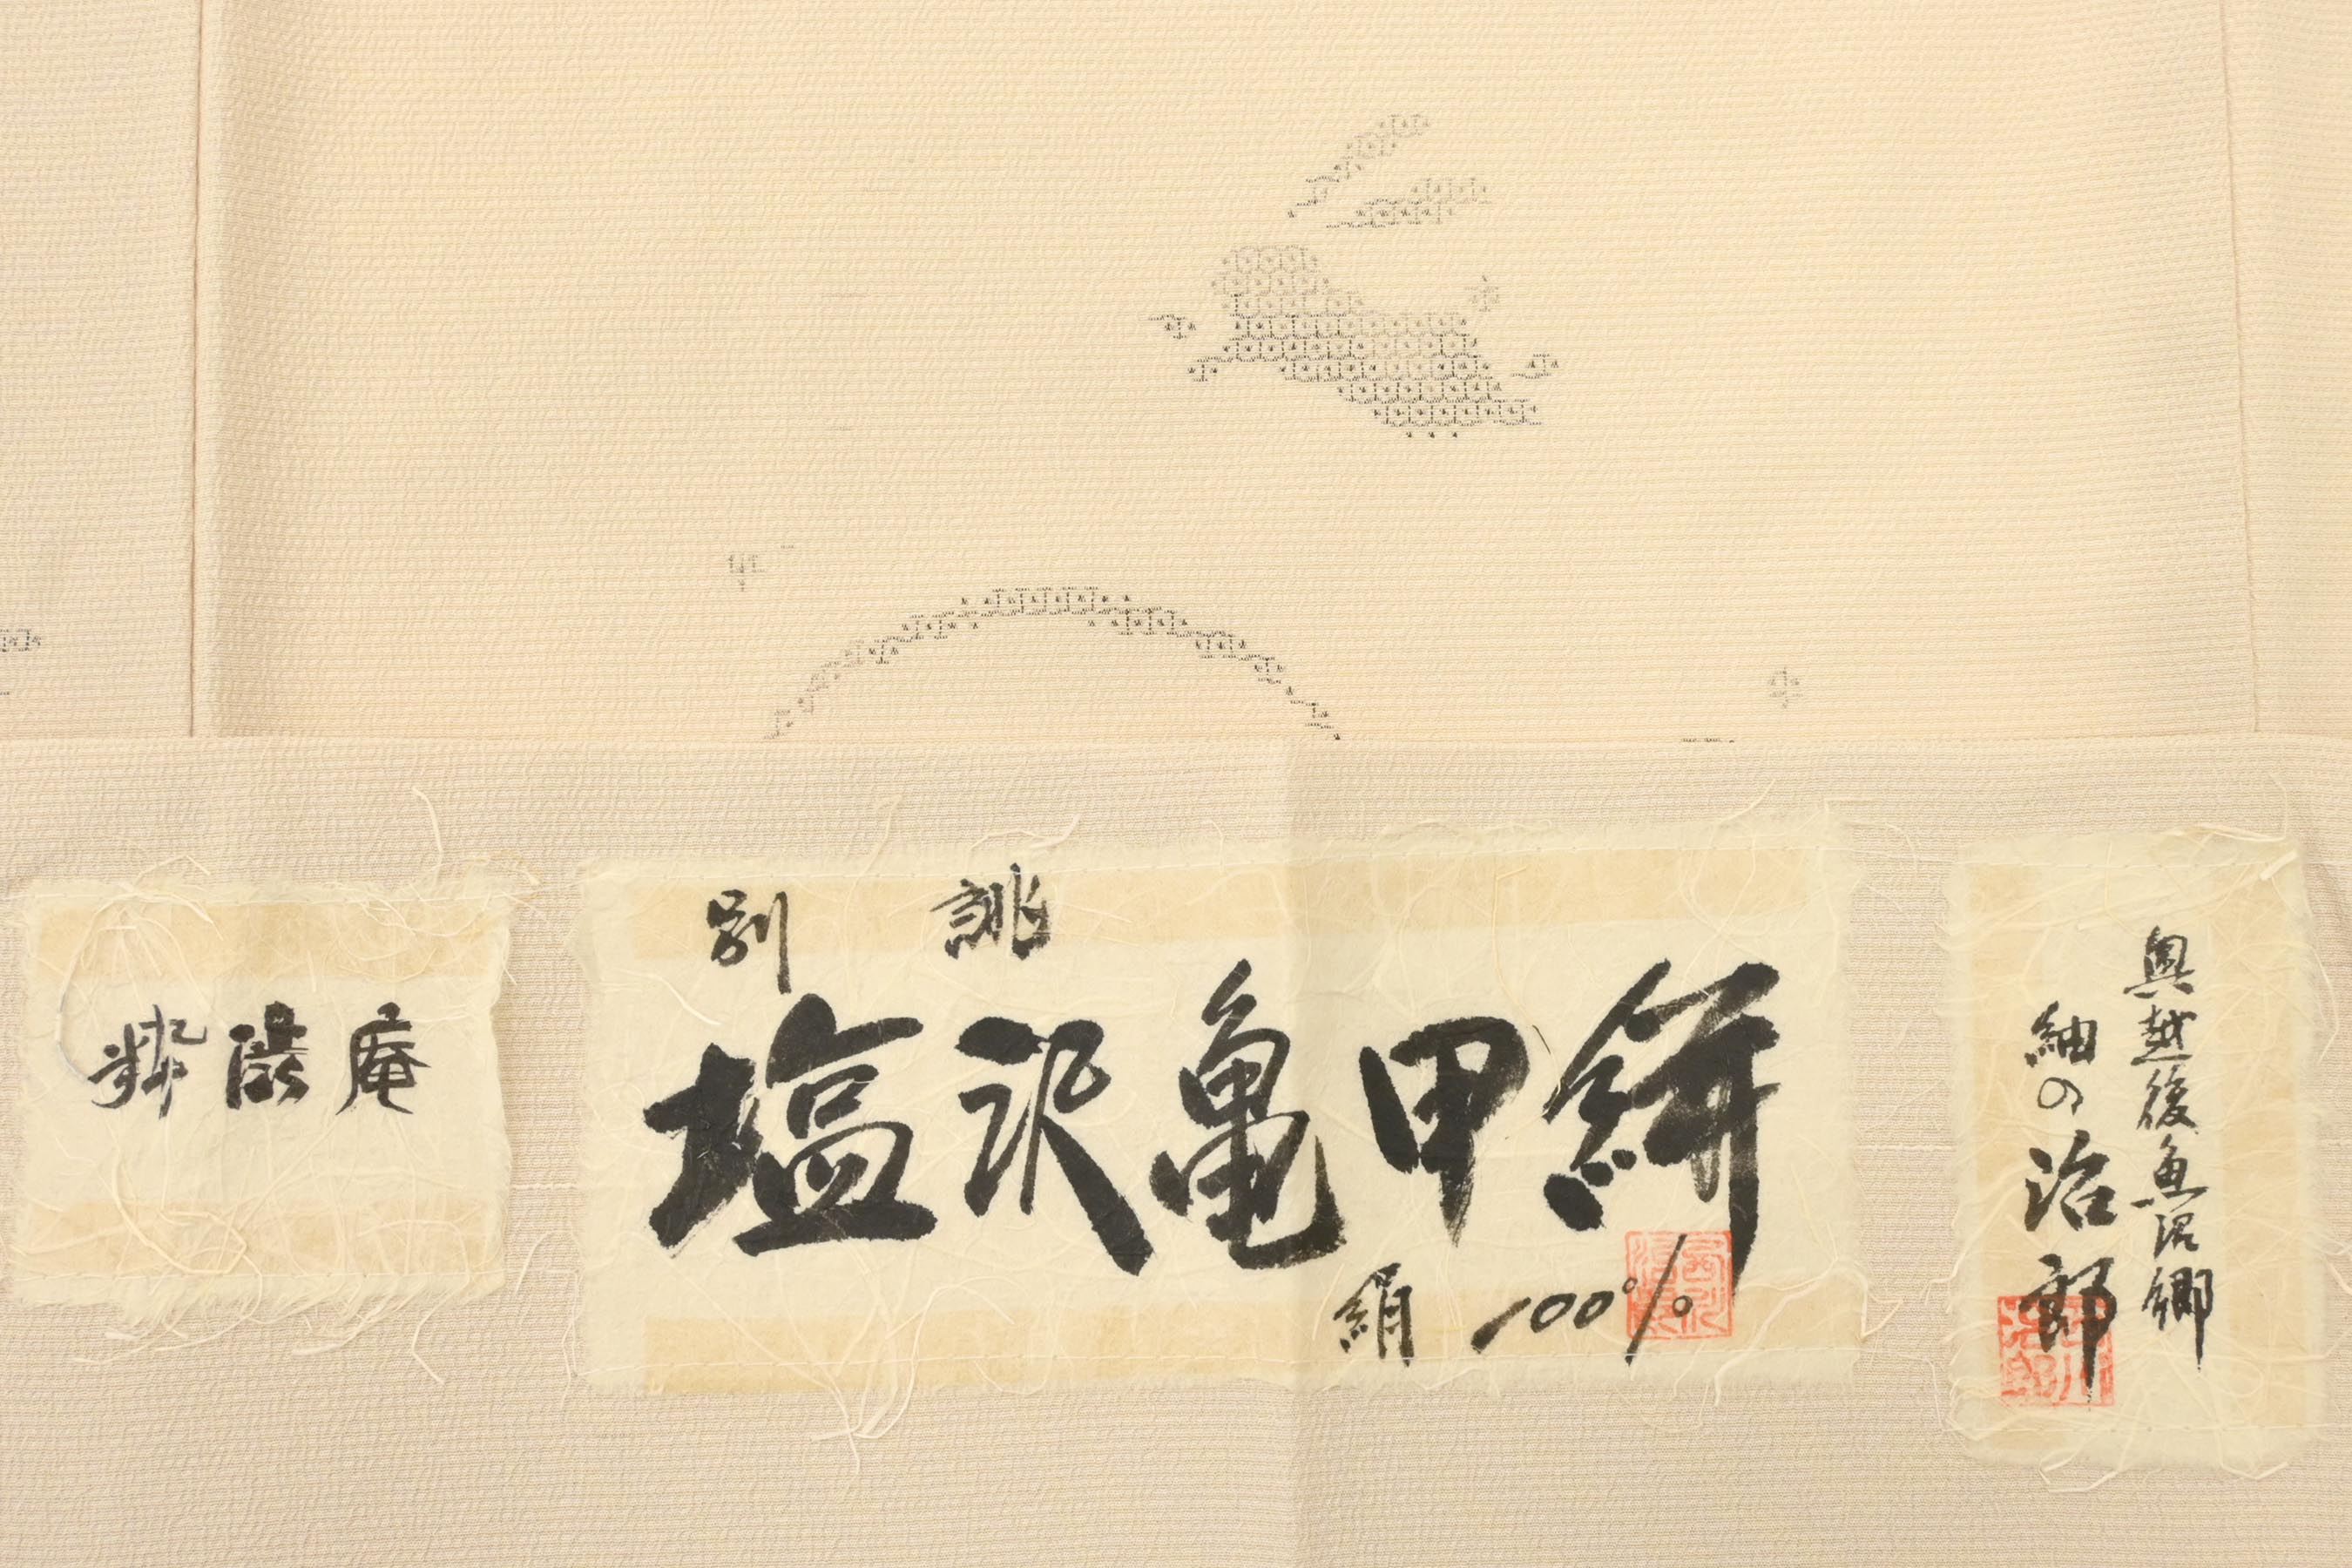 別誂
塩沢亀甲絣
絹100%
奥越後魚沼郷
紬の治郎